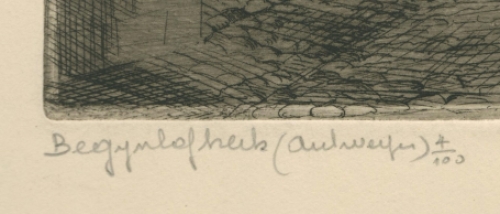 Begynhofkerk (Antwerpen) 4/100